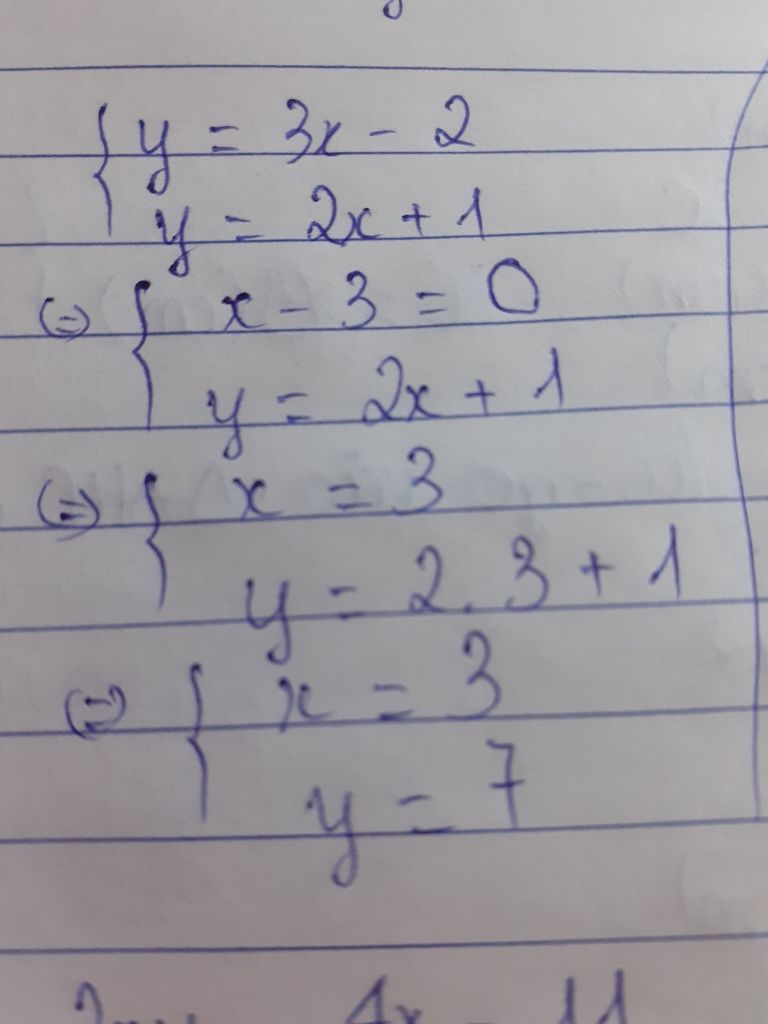 { y = 3x - 2
y = 2x + 1
(=) { x - 3 = 0
y = 2x + 1
(=) { x = 3
y = 2. 3 + 1
(=) { x = 3
y = 7
4x - 11